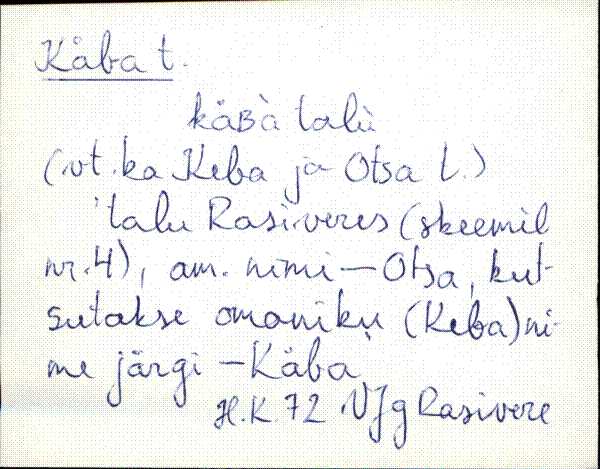 Kåba t.
kåʙà talù
(vt. ka Keba ja Otsa t.)
talu Rasiveres (skeemil
nr. 4), am. nimi – Otsa, kut-
sutakse omaniku (Keba) ni-
me järgi – Kåba
H.K. 72 VJg Rasivere